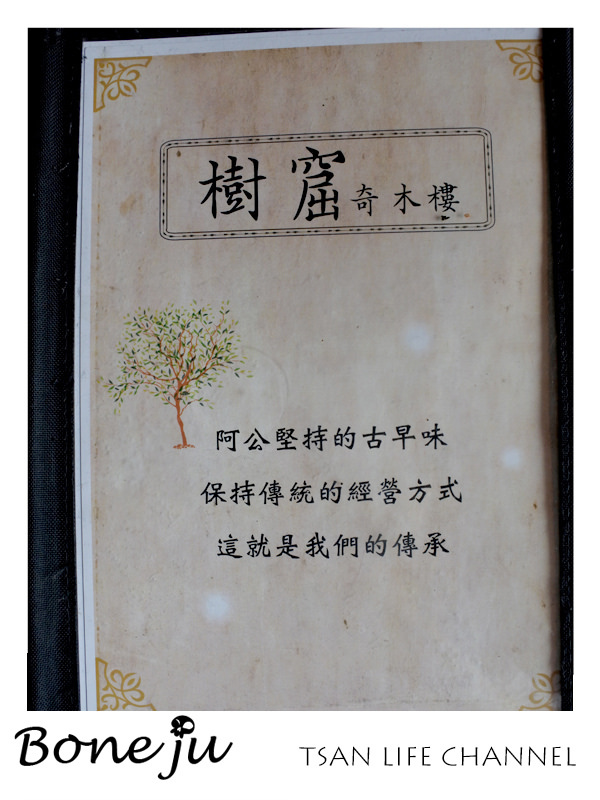 樹窟奇木樓
阿公堅持的古早味
保持傳統的經營方式
這就是我們的傳承
Boneju
TSAN LIFE CHANNEL